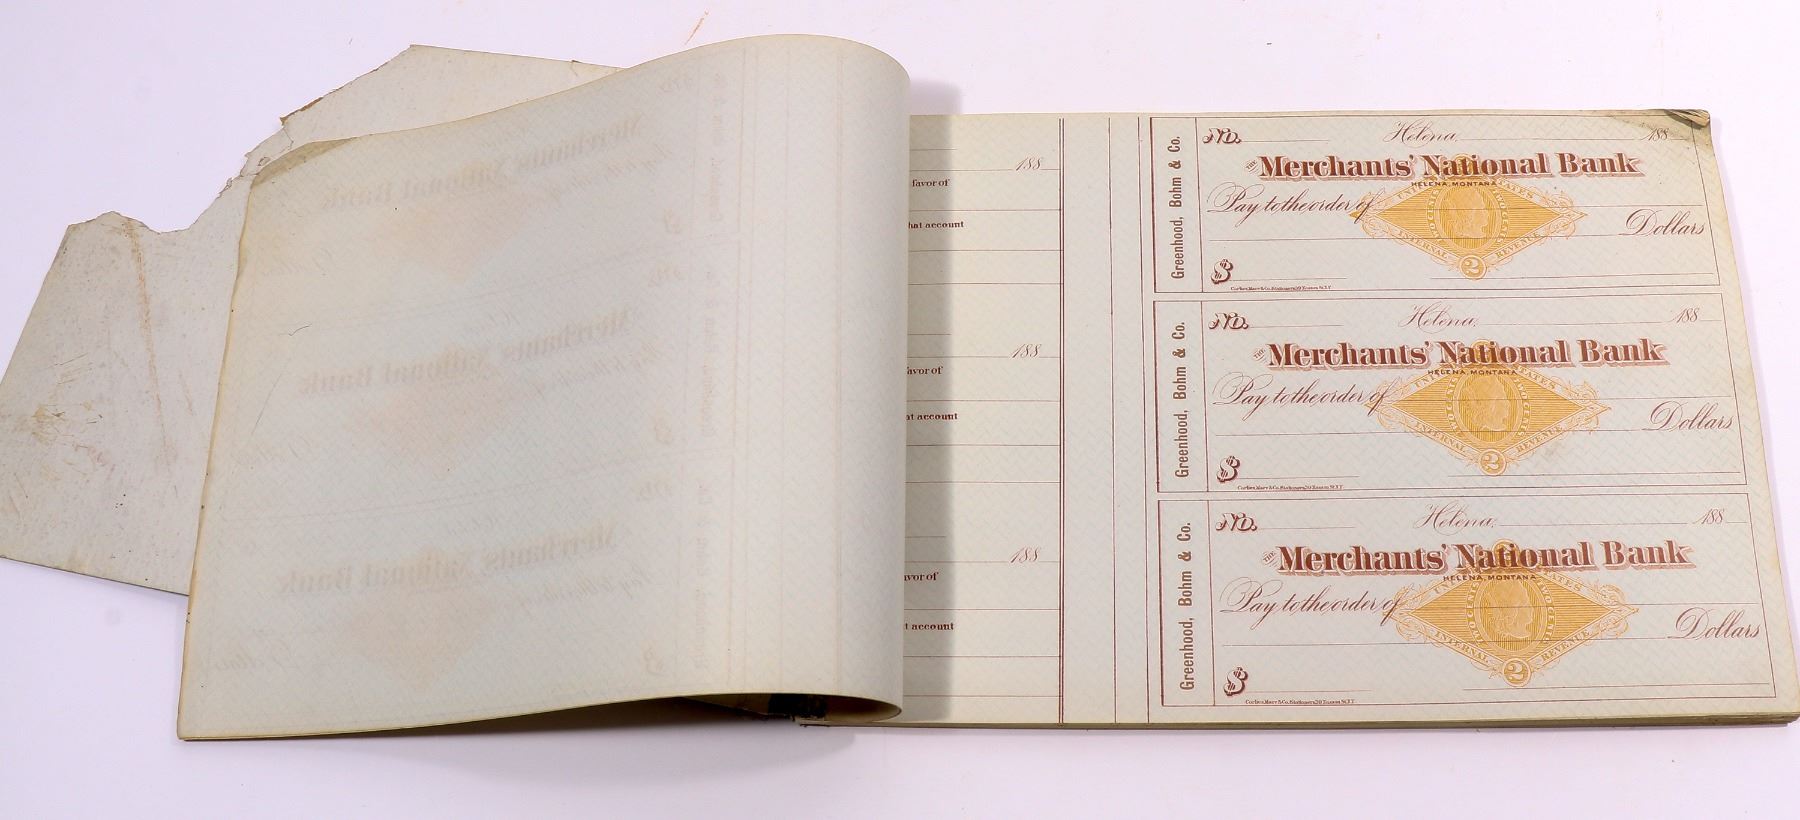 188
favor of
hat account
Greenhood, Bohm & Co.
No. Helena, 188
THE Merchants' National Bank
HELENA, MONTANA
Pay to the order of
UNITED STATES
TWO CENTS TWO CENTS
Dollars
INTERNAL REVENUE
2
$
188
avor of
at account
Greenhood, Bohm & Co.
No. Helena, 188
THE Merchants' National Bank
HELENA, MONTANA
Pay to the order of
UNITED STATES
TWO CENTS TWO CENTS
Dollars
INTERNAL REVENUE
2
$
188
avor of
t account
Greenhood, Bohm & Co.
No. Helena, 188
THE Merchants' National Bank
HELENA, MONTANA
Pay to the order of
UNITED STATES
TWO CENTS TWO CENTS
Dollars
INTERNAL REVENUE
2
$